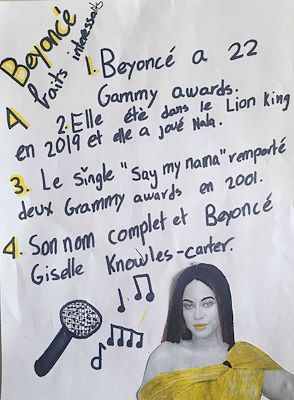 Beyoncé
4 faits interessants
1. Beyoncé a 22
Gammy awards.
2. Elle étè dans le Lion King
en 2019 et elle a joué Nala.
3. Le single "Say my nama" remporté
deux Grammy awards en 2001.
4. Son nom complet et Beyoncé
Giselle Knowles-carter.